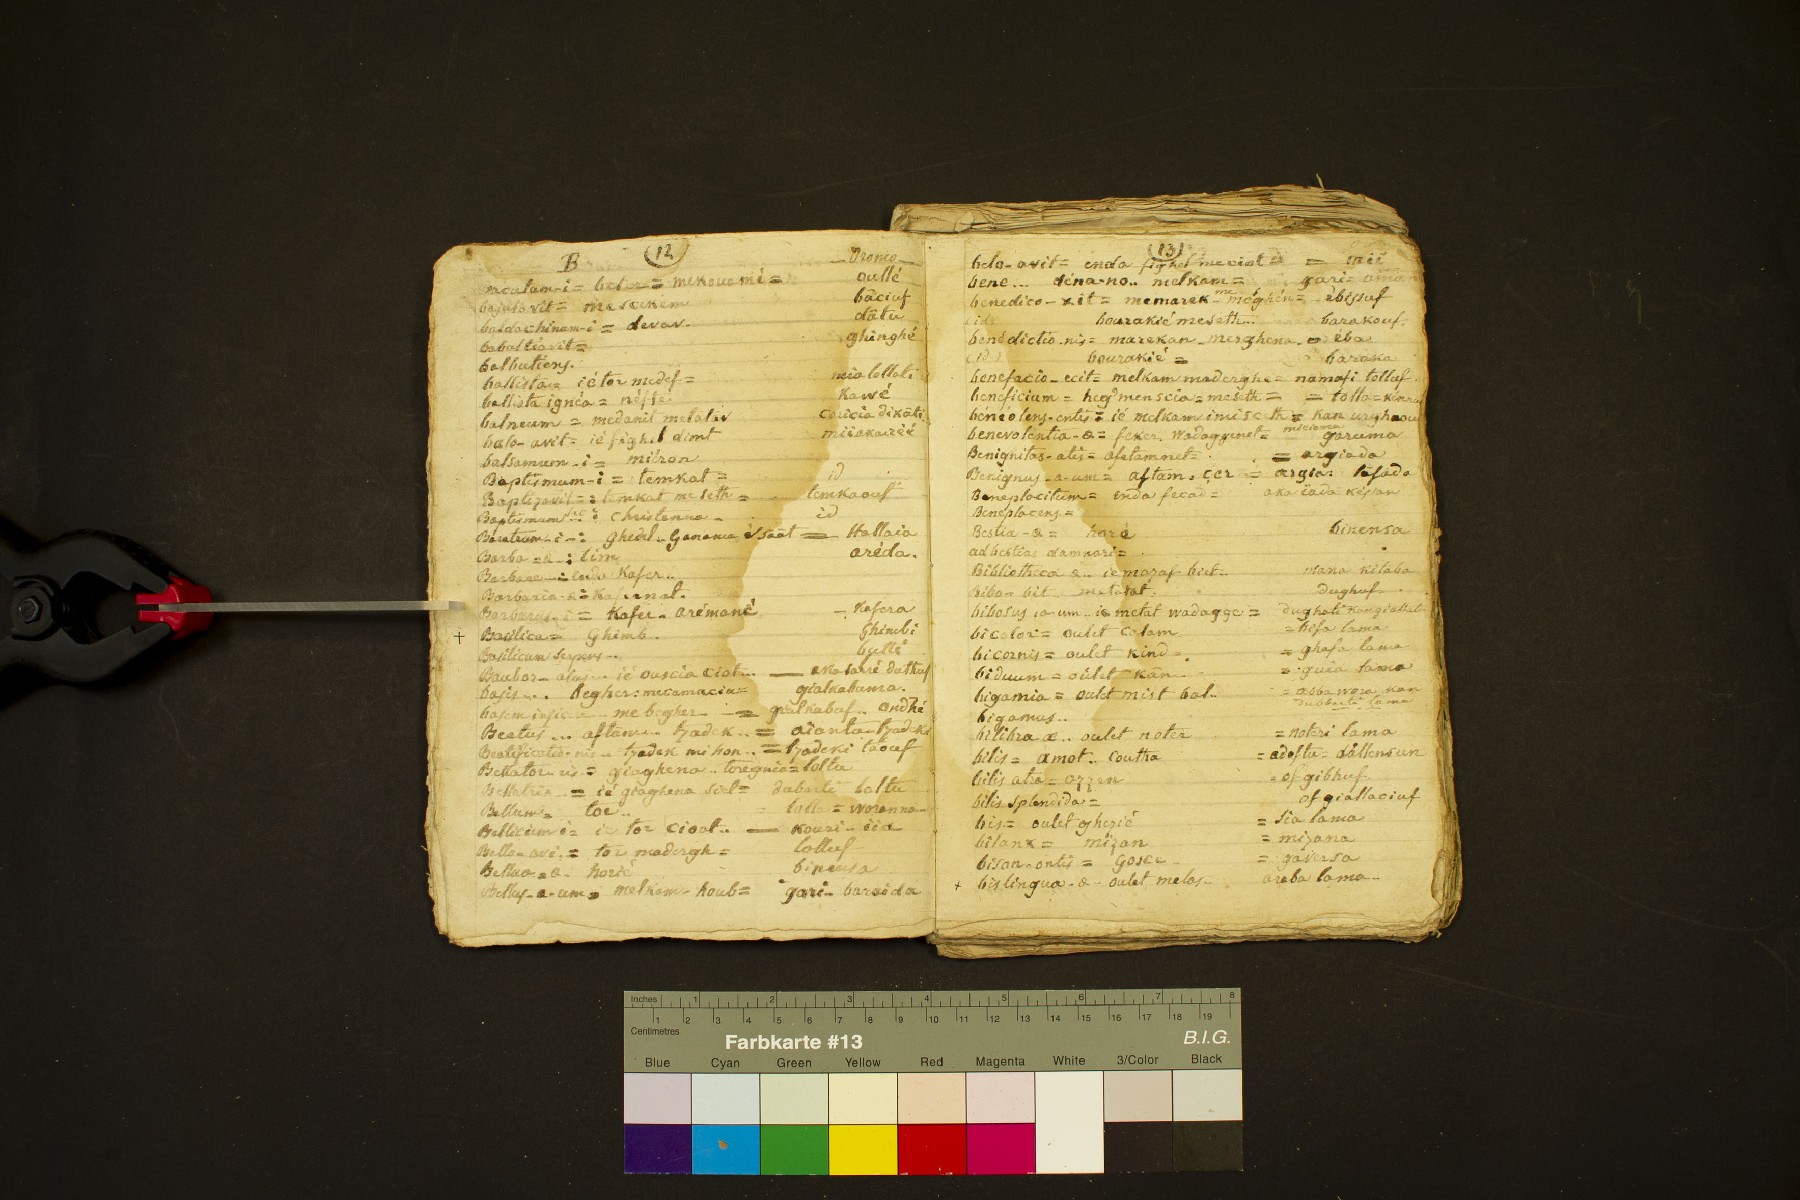 B (12) Oromo
baculum-i = = mekouomi = oullé
bajulavit = mesckem bâciuf
baldachinum-i = devav- dâtu
babastiavit = ghinghé
balbutiens.
ballista = ié tor medef = meia lollati
ballista ignea = neffe Kawé
balneum = medanit metatav couciá dikâti
balo-avit = ié fighel dimt
balsamum-i = miéron
Baptismum-i = temkat = id
Baptizavit = temkat meseth = temkaouf
Baptismum christenna - id
Baratrum-i- : ghedel.. Ganama éssaat = Hallaia
Barba-æ- : tim aréda.
Barbare- : enda Kafer..
Barbaria-æ = Kafernat.
Barbarus-i = Kafer- arémané - Kafera
+ Basilica = Ghimb.. Ghimbi
Basilicum bullé
Baubor-atus ié ouscia ciot... —
basis... begher: mecamacia = gialkabama.
me begher - = gialkabaf.. ondhé
Beatus... aftam... tzadek.. = aïanta-tzadeki
tzadek mihon.. = tzadeki taouf
Bellator-ris = giaghena.. toregnia = lolta
Bellatrix = ié giaghena siet = dubarti loltu
Bellum = tor.. = lolla = woranna-
Bellicum i = ié tor ciout.. — kouri- iia
Bello-avi = tor maderegh = lolluf
Bellua-æ- horié binensa
Bellus-a-um = melkam- koub = gari- bareida
(13)
belo-avit = enda fighel meciot = = iiié
bene... déna-no.. melkam = gari- ama
benedico-xit = memarek- méghén = ébissuf
(id) bourakié meseth... barakouf.
benedictio-nis = marekan- mesghena = éba
(id) bourakié = baraka
benefacio-ecit = melkam maderghe = namafi tolluf
beneficium = heg° menscia = meseth = = tolla =
benéolens-entis = ié melkam imisceth =
benevolentia-æ = feker. wadaggenet = garuma
Benignitas-atis = aftamnet = = argiada
Benignus-a-um = aftam: cer = argia: tâfada
Beneplacitum = enda fecad = aka iada kessan
Beneplacens =
Bestia-æ = horé binensa
ad bestias damnari =
Bibliotheca æ.. ie mazaf biet.. mana kitaba
bibo bit metatat. dughuf.
bibosus-a-um.. ie metat wadagge =
bicolor = oulet calam = bifa lama
bicornis = oulet kind. = ghafa lama
biduum = oulet kan = guia lama
bigamia = oulet mist bal..
bigamus.. dubbarti lama
bilibra æ.. oulet noter = noteri lama
bilis = amot.. coutha = adoftu = dâllensun
bilis atra = azzen = of gibhuf
bilis splendida = of giallaciuf
bis = oulet ghezié = sia lama
bilanx = mizan = mizana
bison-ontis = gosce = gâversa
+ bislingua-æ- oulet melas- araba lama..
Inches 1 2 3 4 5 6 7 8
1 2 3 4 5 6 7 8 9 10 11 12 13 14 15 16 17 18 19
Centimetres
Farbkarte #13 B.I.G.
Blue Cyan Green Yellow Red Magenta White 3/Color Black